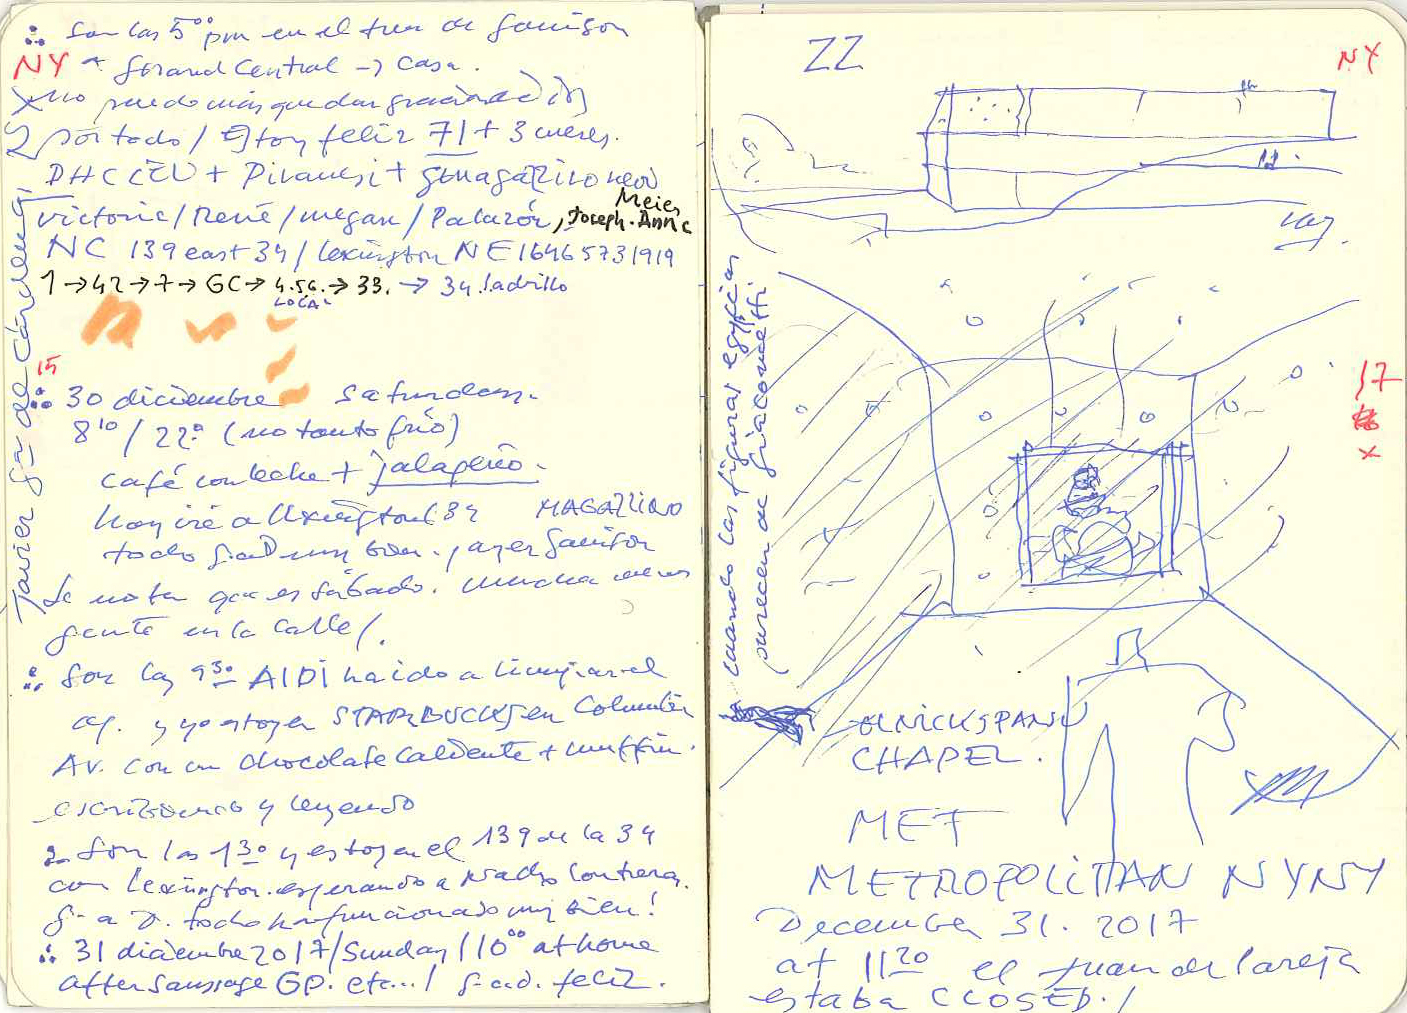 Son las 5°° pm en el tren de Garrison
NY a Grand Central → casa.
no puedo más que dar gracias a Dios
por todo / Estoy feliz 71 + 3 meses.
DHC CEU + Piranesi + Magazzino
Victoria / René / Megan / Palazón, Joseph. Anne
Meier
NC 139 east 34 / Lexington NE 16465731919
1 → 42 → 7 → GC → 4.5.6. → 33. → 34. ladrillo
LOCAL
Javier
15
30 diciembre Saturday.
8¹⁰ / 22° (no tanto frío)
café con leche + jalapeño.
hoy iré a Lexington / 34 MAGAZZINO
todo muy bien. ayer Garrison
Se nota que es sábado. mucha menos
gente en la calle /.
Son las 9³⁰ AIDI ha ido a limpiar el
ap. y yo estoy en STARBUCKS en Columbus
Av. con un chocolate caliente + muffin.
escribiendo y leyendo
Son las 1³⁰ y estoy en el 139 de la 34
con Lexington. esperando a Nacho Contreras.
g. a D. todo ha funcionado muy bien!
31 diciembre 2017 / Sunday / 10°° at home
after sausage GP. etc... / g.a.d. feliz.
ZZ
NY
17
x
cuando las figuras egipcias
parecen de giacometti
OLNICK SPANU
CHAPEL.
MET
METROPOLITAN NYNY
December 31. 2017
at 11²⁰ el Juan de Pareja
estaba CLOSED. /